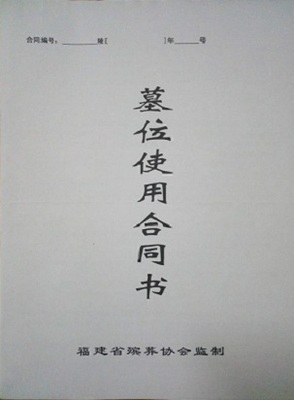 合同编号：________陵[ ]年____号
墓位使用合同书
福建省殡葬协会监制